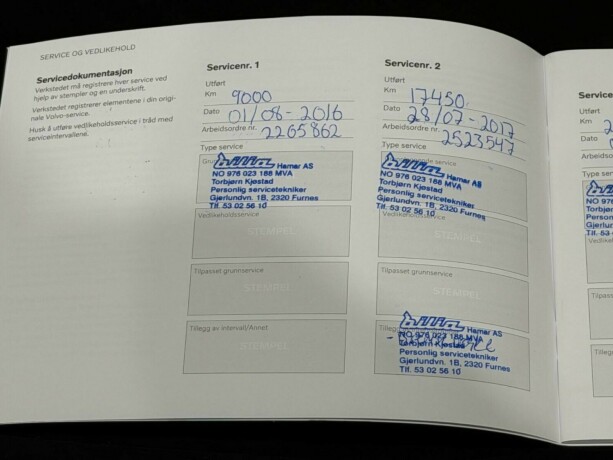 SERVICE OG VEDLIKEHOLD
Servicedokumentasjon
Verkstedet må registrere hver service ved
hjelp av stempler og en underskrift.
Verkstedet registrerer elementene i din origi-
nale Volvo-service.
Husk å utføre vedlikeholdsservice i tråd med
serviceintervallene.
Servicenr. 1
Utført
Km 9000
Dato 01/08-2016
Arbeidsordre nr. 2265862
Type service
bilia Hamar AS
NO 976 023 188 MVA
Torbjørn Kjøstad
Personlig servicetekniker
Gjerlundvn. 1B, 2320 Furnes
Tlf. 53 02 56 10
Vedlikeholdsservice
STEMPEL
Tilpasset grunnservice
STEMPEL
Tillegg av intervall/Annet
STEMPEL
Servicenr. 2
Utført
Km 17450
Dato 28/07-2017
Arbeidsordre nr. 2523547
Type service
bilia Hamar AS
NO 976 023 188 MVA
Torbjørn Kjøstad
Personlig servicetekniker
Gjerlundvn. 1B, 2320 Furnes
Tlf. 53 02 56 10
Vedlikeholdsservice
STEMPEL
Tilpasset grunnservice
STEMPEL
bilia Hamar AS
NO 976 023 188 MVA
Torbjørn Kjøstad
Personlig servicetekniker
Gjerlundvn. 1B, 2320 Furnes
Tlf. 53 02 56 10
Servicenr.
Utført
Km
Dato
Arbeidsor
Type ser
NO 97
Torbjø
Person
Gjerlun
Tlf. 53
Vedlikel
Tilpass
Tilleg